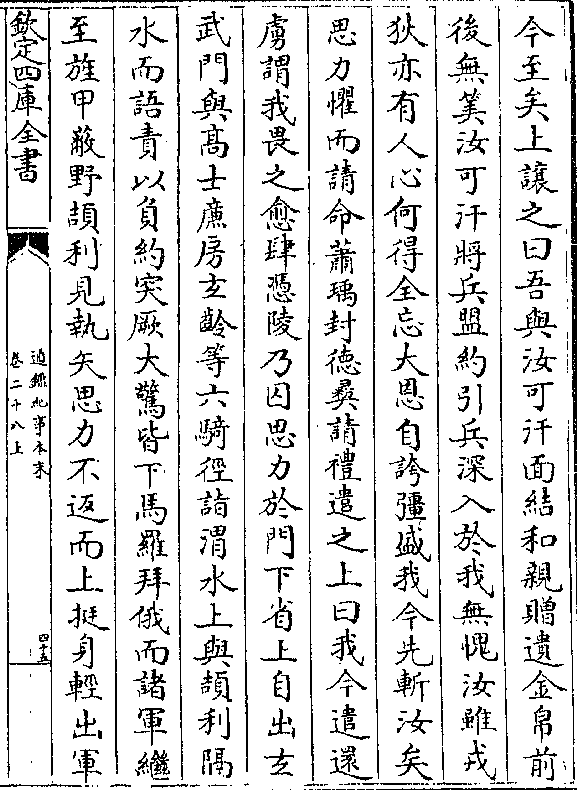 今至矣上讓之曰吾與汝可汗面結和親贈遺金帛前
後無筭汝可汗將兵盟約引兵深入於我無愧汝雖戎
狄亦有人心何得全忘大恩自誇彊盛我今先斬汝矣
思力懼而請命蕭瑀封德彛請禮遣之上曰我今遣還
虜謂我畏之愈肆憑陵乃囚思力於門下省上自出𤣥
武門與髙士㢘房𤣥齡等六騎徑詣渭水上與頡利隔
水而語責以負約突厥大驚皆下馬羅拜俄而諸軍繼
至旌甲蔽野頡利見執矢思力不返而上挺身輕出軍
欽定四庫全書
通鑑紀事本末
卷二十八上
四十五